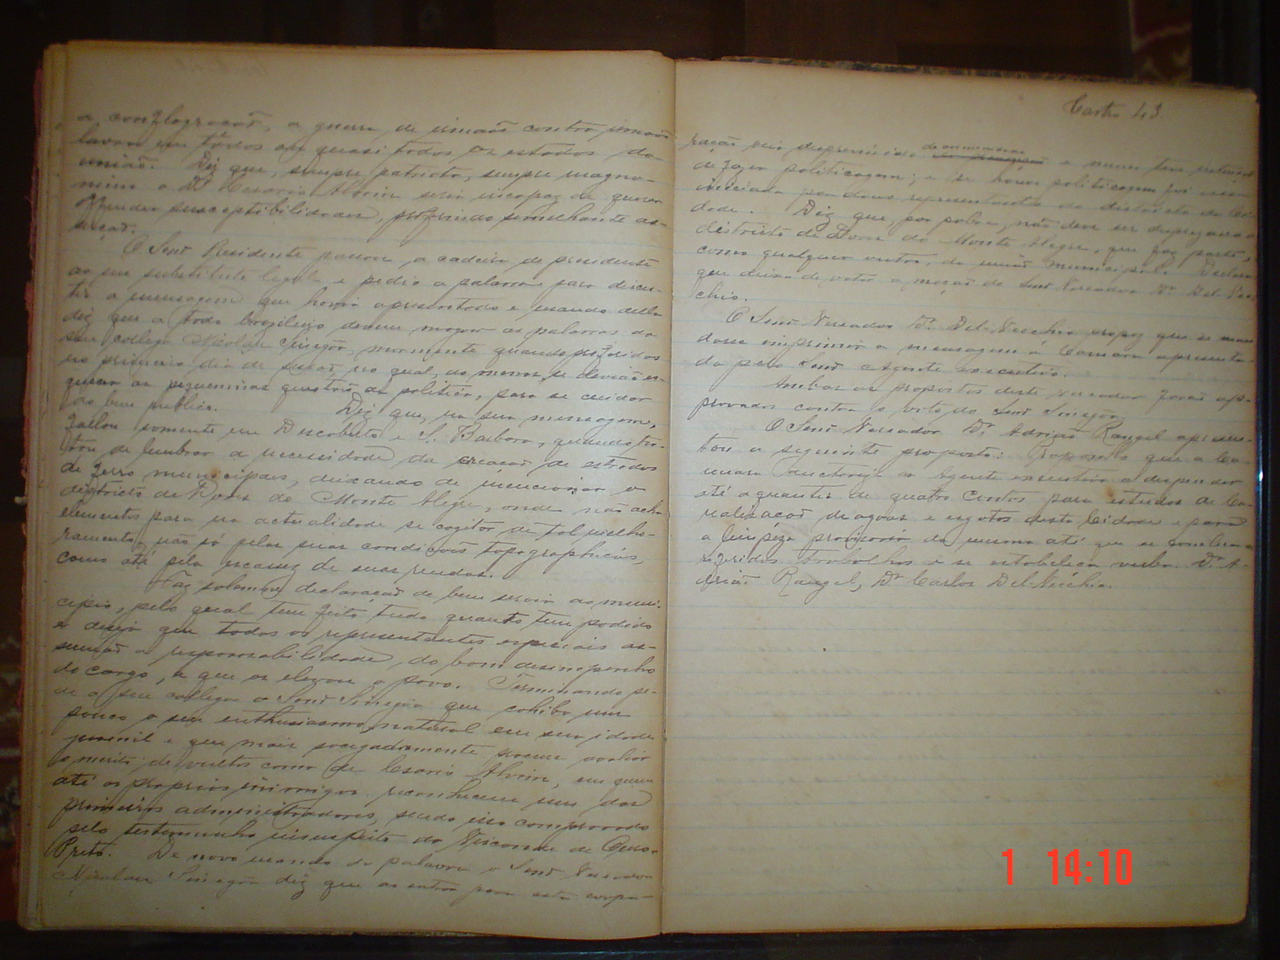 a conflagração, a guerra de irmãos contra irmãos
lavra em todos ou quasi todos os estados da
união. Diz que, sempre patriota, sempre magna-
nimo o Dr. Cesario Alvim seria incapaz de querer
offender susceptibilidades, proferindo semelhante as-
serção.
O Senr. Presidente passou a cadeira de presidente
ao seu substituto legal e pedio a palavra para discu-
tir a mensagem que havia apresentado e usando della
diz que a todo brasileiro devem magoar as palavras do
seu collega Nicolau, mormente quando proferidas
no primeiro dia de sessão no qual, ao menos, se devião es-
quecer as pequeninas questões da politica, para se cuidar
do bem publico. Diz que, na sua mensagem,
fallou somente em Descoberto e S. Barbara, quando tra-
tou de lembrar a necessidade da creação de estradas
de ferro municipaes, deixando de mencionar o
districto de Dores do Monte Alegre, onde não acha
elementos para na actualidade se cogitar de tal melho-
ramento, não só pelas suas condições topographicas,
como até pela escassez de suas rendas.
Faz solemne declaração de bem servir ao muni-
cipio, pelo qual tem feito tudo quanto tem podido
e deseja que todos os representantes especiais as-
sumão a responsabilidade, do bom desempenho
do cargo, a que os elegeu o povo. Terminando pe-
de a seu collega o Senr. que cohiba um
pouco o seu enthusiasmo, natural em sua idade
juvenil e que mais socegadamente procure avaliar
o merito de vultos como o de Cesario Alvim, em quem
até os proprios inimigos reconhecem um dos
primeiros administradores, sendo isso comprovado
pelo testemunho insuspeito do Visconde de Ouro
Preto. De novo usando da palavra o Senr. Vereador
Nicolau diz que as entrar para esta corpo-
Castro 43.
ração veio desprevenido e nunca tem
de fazer politicagem; e se houve politicagem foi essa
iniciada por dous representantes do districto da Ci-
dade. Diz que por pobre, não deve ser desprezado o
districto de Dores do Monte Alegre, que faz parte,
como qualquer outro, da união municipal. Declara
que deixa de votar a moção do Senr. Vereador Dr. Del-Vec-
chio.
O Senr. Vereador Dr. Del-Vecchio propoz que se man-
dasse imprimir a mensagem á Camara apresenta-
da pelo Senr. Agente executivo.
Ambas as propostas deste vereador forão ap-
provadas contra o voto do Senr.
O Senr. Vereador Dr. Adrião Rangel apresen-
tou a seguinte proposta: Proponho que a Ca-
mara auctorize o Agente executivo a despender
até a quantia de quatro contos para estudos de ca-
nalisação de agoas e exgotos desta Cidade e para
a limpeza provisoria da mesma até que se
referidos trabalhos e se estabeleça verba. Dr. A-
drião Rangel, Dr. Carlos Del-Vecchio.
1 14:10